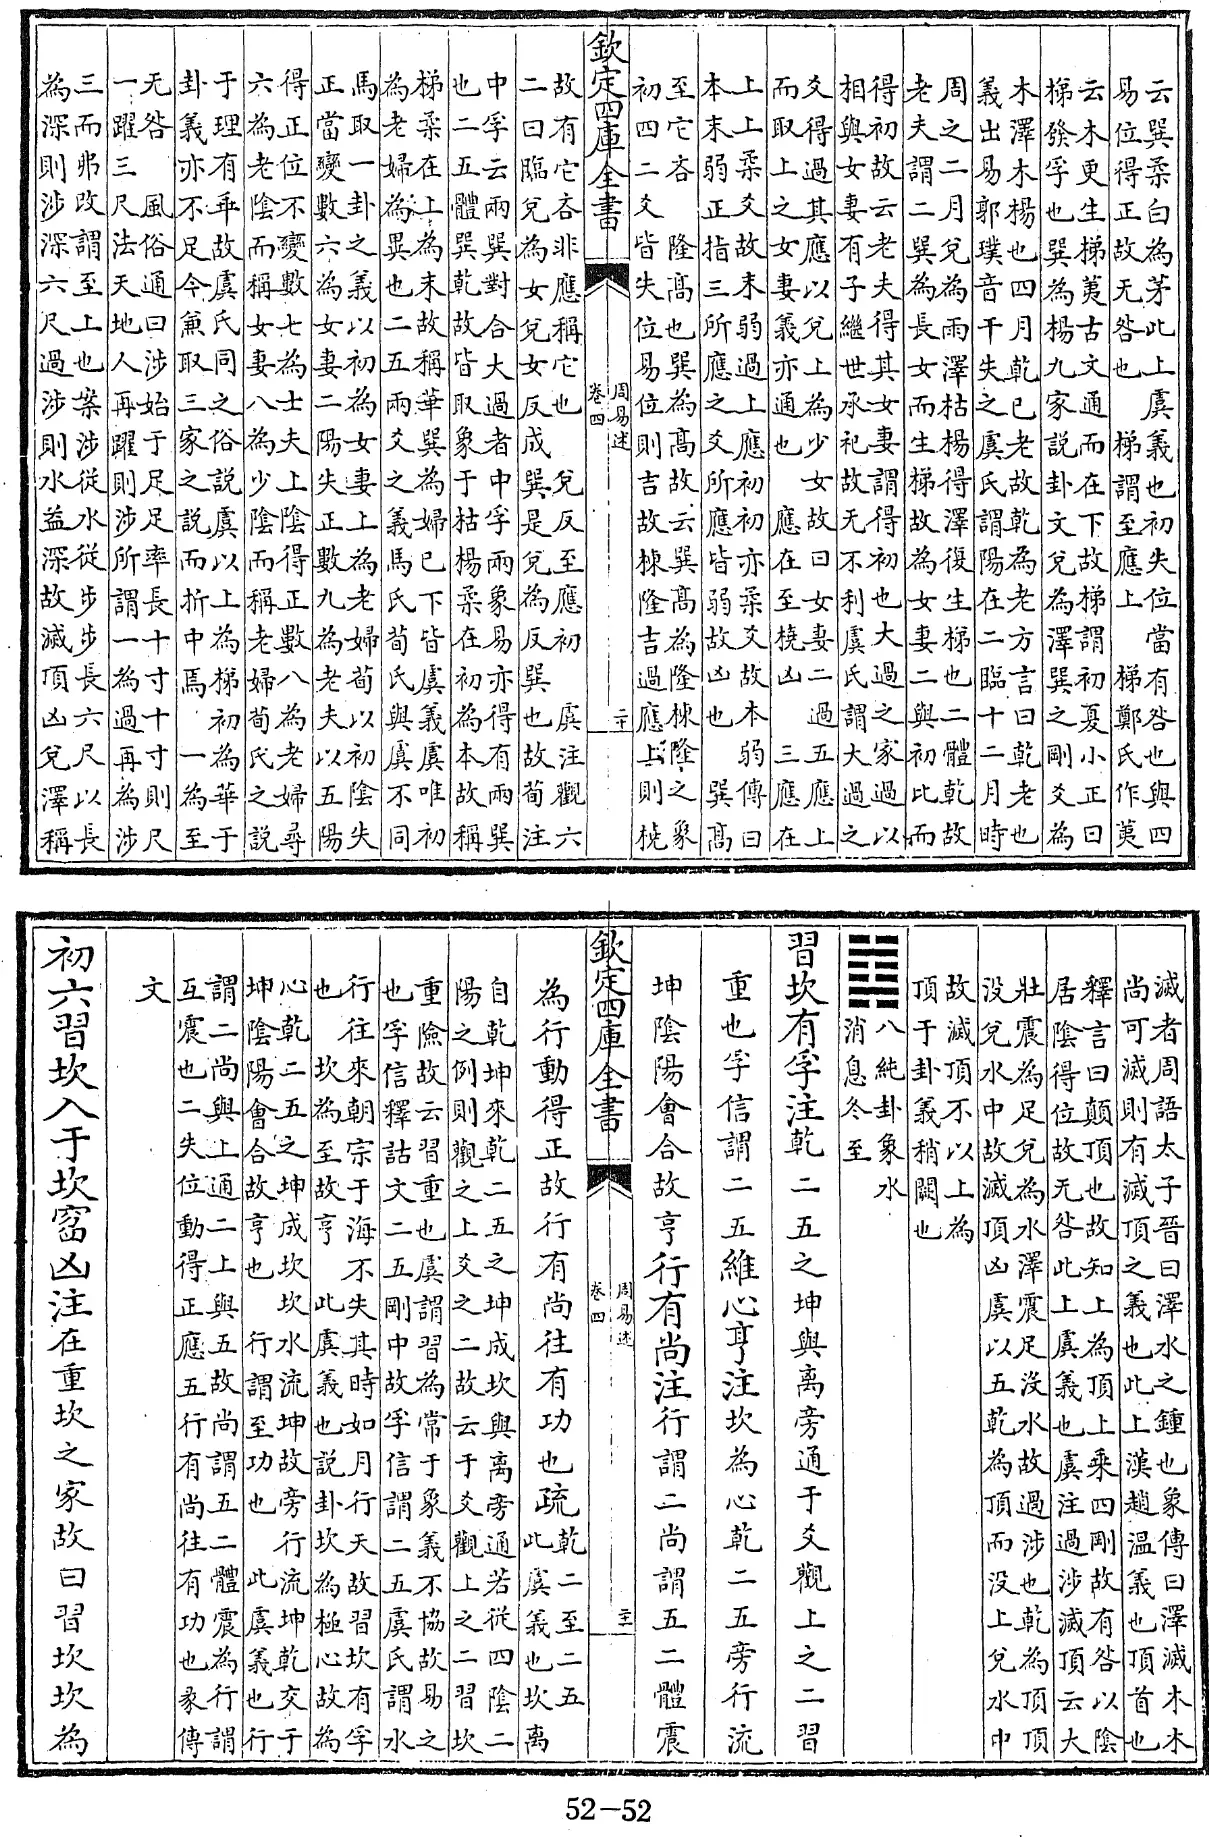 云巽柔白為茅此上虞義也初失位當有咎也與四
易位得正故无咎也　梯謂至應上　梯鄭氏作荑
云木更生梯荑古文通而在下故梯謂初夏小正曰
梯發孚也巽為楊九家說卦文兌為澤巽之剛爻為
木澤木楊也四月乾已老故乾為老方言曰乾老也
義出易郭璞音干失之虞氏謂陽在二臨十二月時
周之二月兌為雨澤枯楊得澤復生梯也二體乾故
老夫謂二巽為長女而生梯故為女妻二與初比而
得初故云老夫得其女妻謂得初也大過之家過以
相與女妻有子繼世承祀故无不利虞氏謂大過之
爻得過其應以兌上為少女故曰女妻二過五應上
而取上之女妻義亦通也　應在至橈凶　三應在
上上柔爻故末弱過上應初初亦柔爻故本弱傳曰
本末弱正指三所應之爻所應皆弱故凶也　巽高
至它吝　隆高也巽為高故云巽高為隆棟隆之象
初四二爻皆失位易位則吉故棟隆吉過應上則橈
欽定四庫全書
周易述
卷四
二十
故有它吝非應稱它也　兌反至應初　虞注觀六
二曰臨兌為女兌女反成巽是兌為反巽也故荀注
中孚云兩巽對合大過者中孚兩象易亦得有兩巽
也二五體巽乾故皆取象于枯楊柔在初為本故稱
梯柔在上為末故稱華巽為婦已下皆虞義虞唯初
為老婦為異也二五兩爻之義馬氏荀氏與虞不同
馬取一卦之義以初為女妻上為老婦荀以初陰失
正當變數六為女妻二陽失正數九為老夫以五陽
得正位不變數七為士夫上陰得正數八為老婦尋
六為老陰而稱女妻八為少陰而稱老婦荀氏之說
于理有乖故虞氏同之俗說虞以上為梯初為華于
卦義亦不足今兼取三家之說而折中焉　一為至
无咎　風俗通曰涉始于足足率長十寸十寸則尺
一躍三尺法天地人再躍則涉所謂一為過再為涉
三而弗改謂至上也案涉從水從步步長六尺以長
為深則涉深六尺過涉則水益深故滅頂凶兌澤稱
滅者周語太子晉曰澤水之鍾也象傳曰澤滅木木
尚可滅則有滅頂之義也此上漢趙溫義也頂首也
釋言曰顛頂也故知上為頂上乘四剛故有咎以陰
居陰得位故无咎此上虞義也虞注過涉滅頂云大
壯震為足兌為水澤震足没水故過涉也乾為頂頂
没兌水中故滅頂凶虞以五乾為頂而没上兌水中
故滅頂不以上為
頂于卦義稍闕也
䷜八純卦象水
消息冬至
習坎有孚注乾二五之坤與离旁通于爻觀上之二習
重也孚信謂二五維心亨注坎為心乾二五旁行流
坤陰陽會合故亨行有尚注行謂二尚謂五二體震
欽定四庫全書
周易述
卷四
二十一
為行動得正故行有尚往有功也疏乾二至二五
此虞義也坎离
自乾坤來乾二五之坤成坎與离旁通若從四陰二
陽之例則觀之上爻之二故云于爻觀上之二習坎
重險故云習重也虞謂習為常于象義不協故易之
也孚信釋詁文二五剛中故孚信謂二五虞氏謂水
行往來朝宗于海不失其時如月行天故習坎有孚
也　坎為至故亨　此虞義也說卦坎為極心故為
心乾二五之坤成坎坎水流坤故旁行流坤乾交于
坤陰陽會合故亨也　行謂至功也　此虞義也行
謂二尚與上通二上與五故尚謂五二體震為行謂
互震也二失位動得正應五行有尚往有功也彖傳
文
初六習坎入于坎窞凶注在重坎之家故曰習坎坎為
52-52